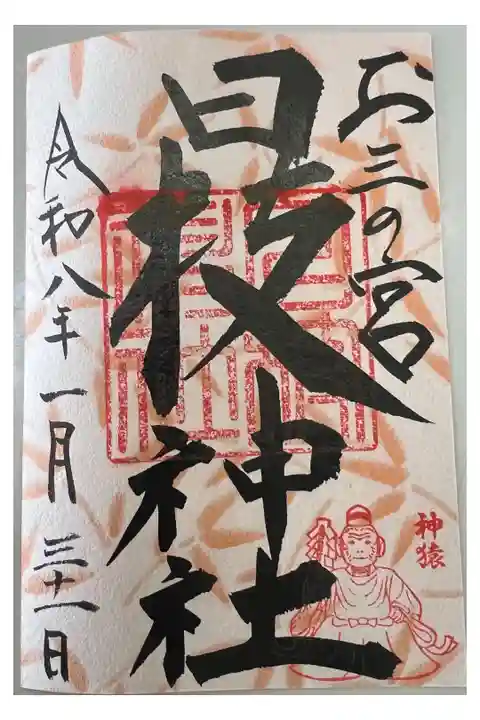 お三の宮
日枝神社
神猿
令和八年一月三十一日